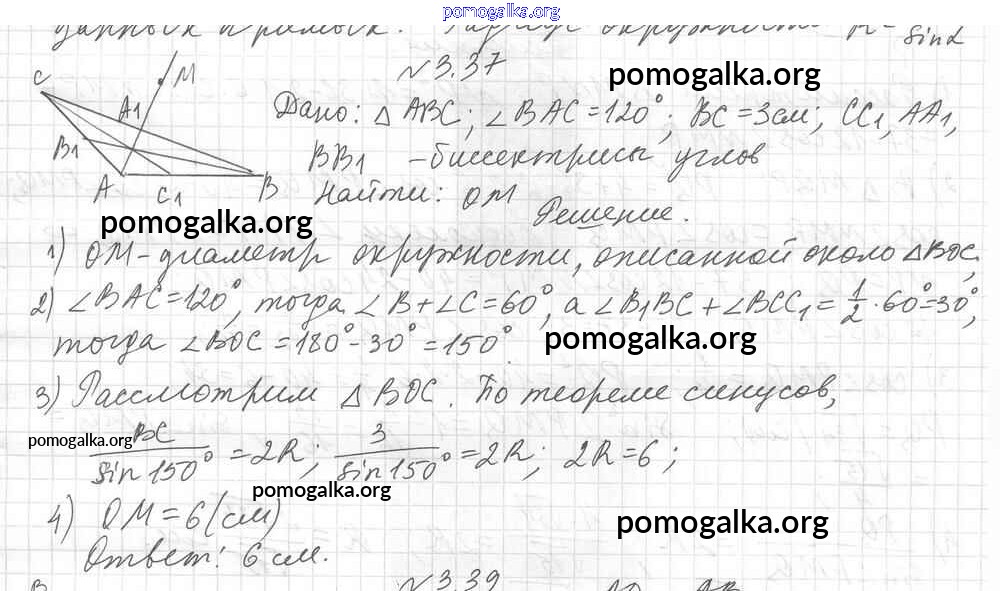 pomogalka.org
данных прямых. Радиус окружности R = sin α
№ 3.37
pomogalka.org
C M A1 B1 A C1 B
Дано: △ABC; ∠BAC = 120°; BC = 3см; CC1, AA1,
BB1 – биссектрисы углов
Найти: OM
pomogalka.org
Решение.
1) OM – диаметр окружности, описанной около △BOC;
2) ∠BAC = 120°, тогда ∠B + ∠C = 60°, а ∠B1BC + ∠BCC1 = 1/2 · 60° = 30°,
тогда ∠BOC = 180° – 30° = 150°.
pomogalka.org
3) Рассмотрим △BOC. По теореме синусов,
pomogalka.org
BC / sin 150° = 2R; 3 / sin 150° = 2R; 2R = 6;
pomogalka.org
4) OM = 6 (см)
pomogalka.org
Ответ: 6 см.
№ 3.39